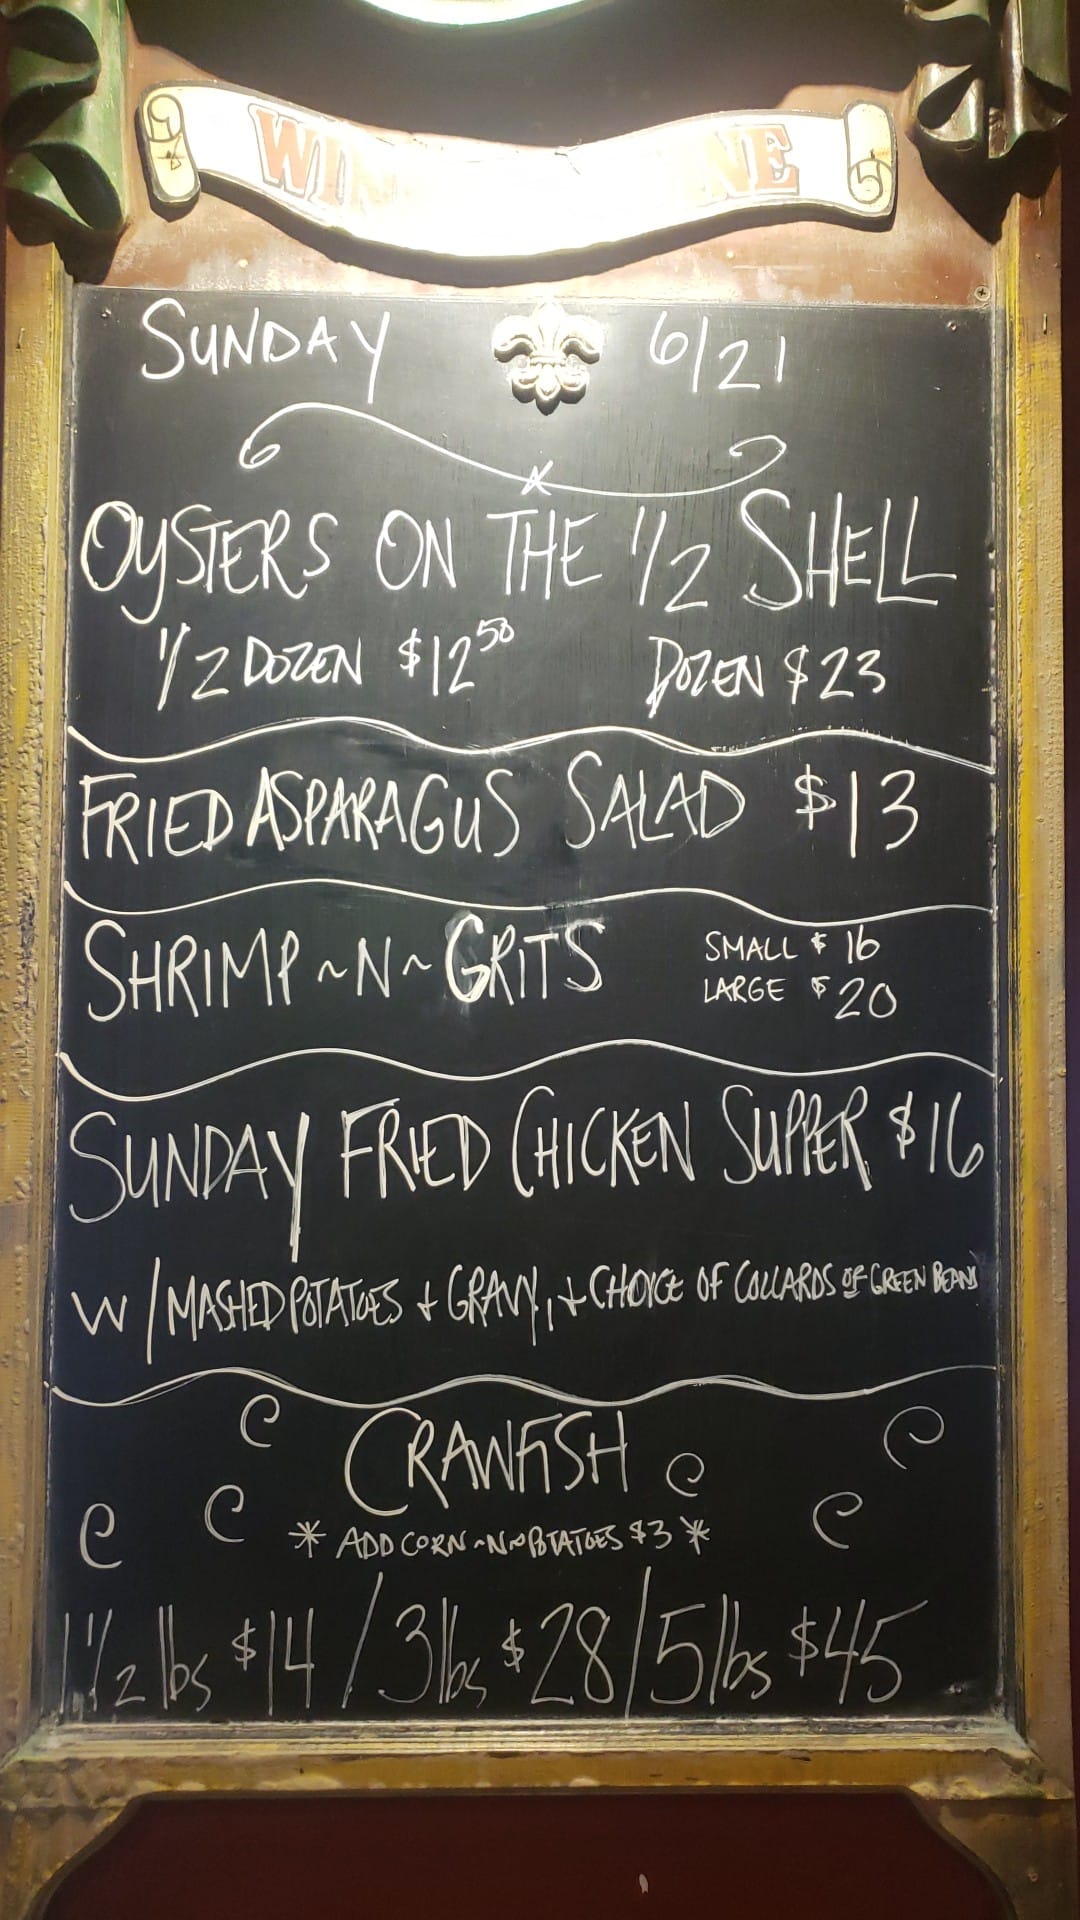 SUNDAY 6/21
OYSTERS ON THE 1/2 SHELL
1/2 DOZEN $12 50 DOZEN $23
FRIED ASPARAGUS SALAD $13
SHRIMP ~N~ GRITS
SMALL $ 16
LARGE $ 20
SUNDAY FRIED CHICKEN SUPPER $16
W/MASHED POTATOES + GRAVY, + CHOICE OF COLLARDS OR GREEN BEANS
CRAWFISH
* ADD CORN ~N~ POTATOES $3 *
1 1/2 lbs $14 / 3 lbs $28 / 5 lbs $45